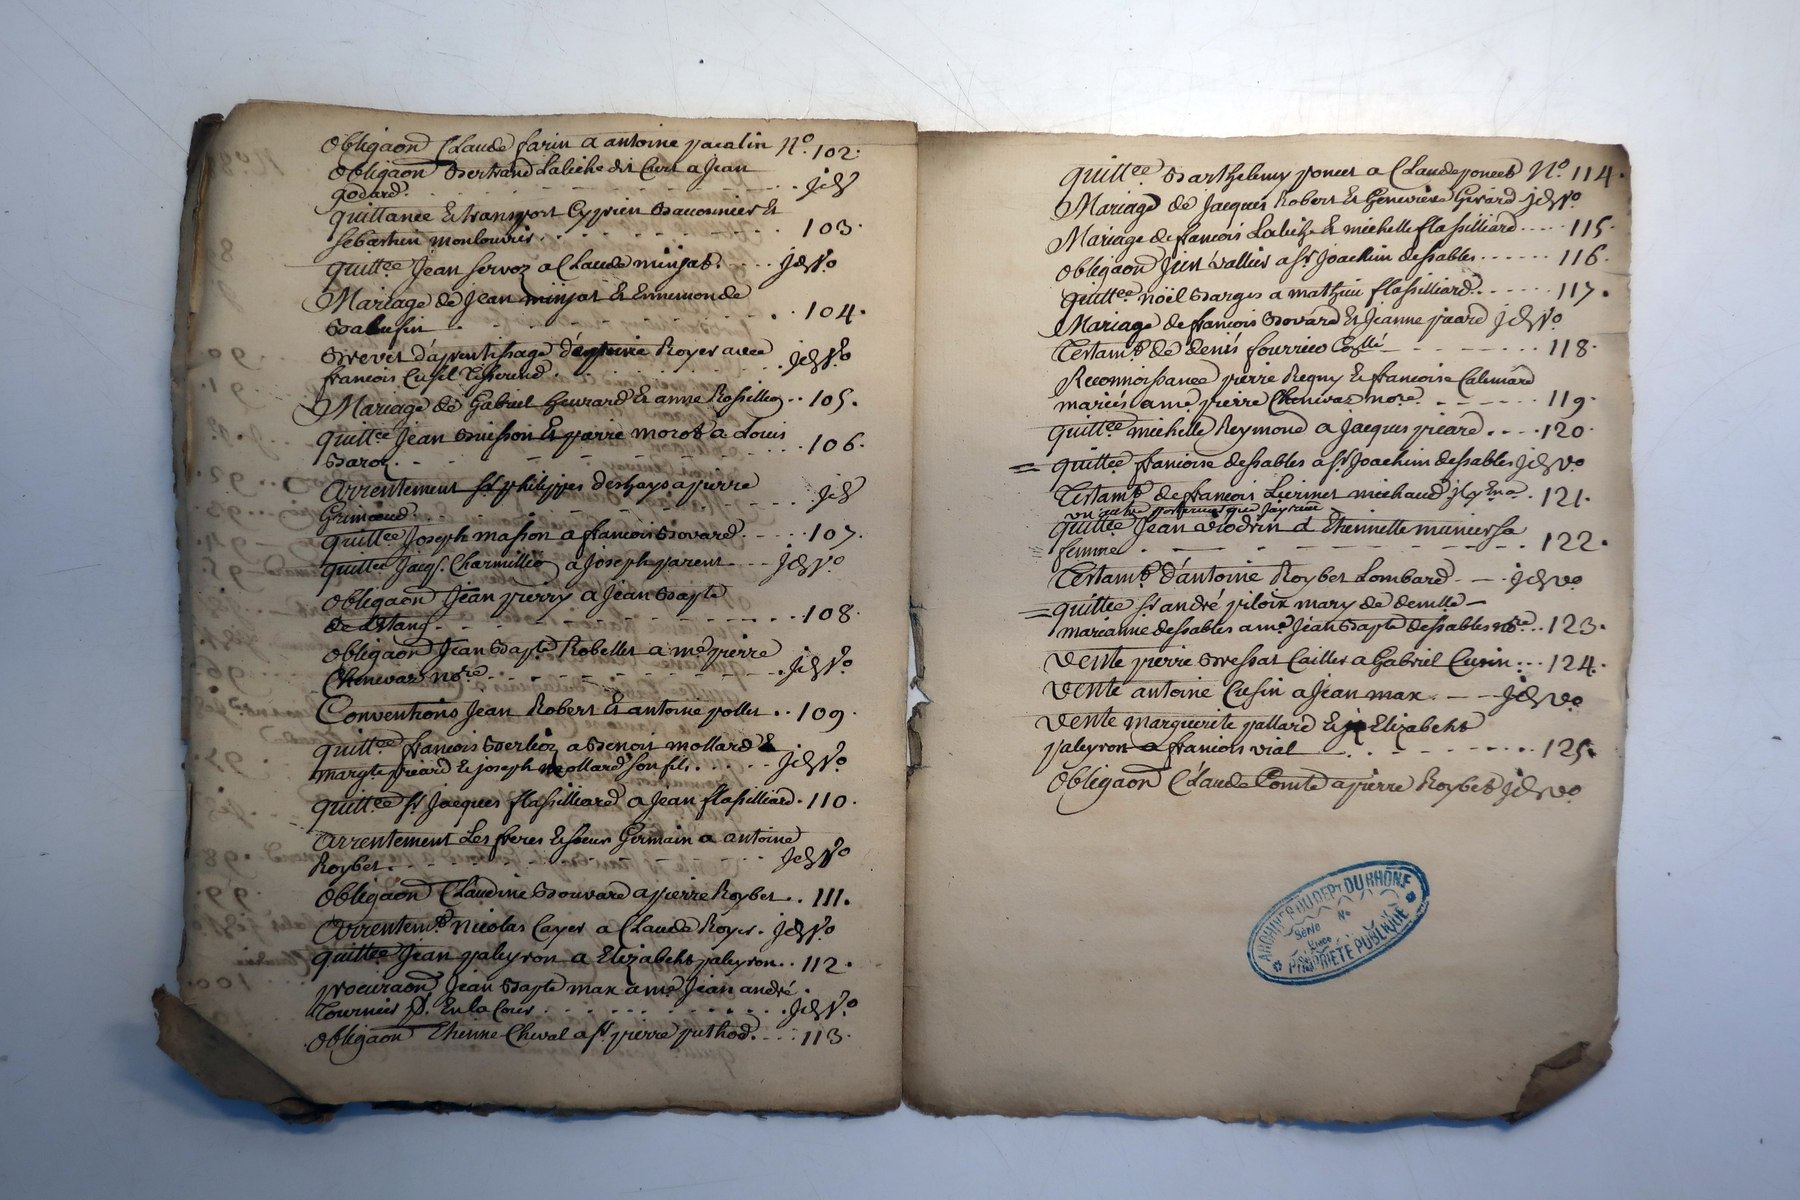 obligaõn Claude farin a antoine pacalin N.º 102.
obligaõn Bertrand Labiche dit Curt a Jean
godard. jdº
quittance & transport Cyprien Bauconnier &
sebastien monlouvris 103.
quittce Jean servoz a Claude minjat. jd vº
Mariage de Jean minjat & Ennemonde
Balufin 104.
Brevet d'aprentissage d'antoine Royer avec
francois Cusil tisserend. jd vº
Mariage de Gabriel heurard & anne Rosillion 105.
quittce Jean Buisson & pierre morat a Louis
Baroz. 106.
arrentement sr philippes deshays a pierre
Grimaud. jdº
quittce Joseph masson a francois Bovard. 107.
quittce Jacqs. Charmillion a Joseph parent jd vº
obligaõn Jean pierry a Jean Bapte
de L'Etang. 108.
obligaõn Jean Bapte Robellet a me pierre
Chenevaz nore. jd vº
Conventions Jean Robert & antoine pollet 109.
quittce francois Berlioz a Benoit mollard &
margte picard & joseph mollard son fils jd vº
quittce sr Jacques flassilliard a Jean flassilliard. 110.
arrentement Les freres & soeur Germain a antoine
Roybet. jd vº
obligaõn Claudine Bouvard a pierre Roybet. 111.
arrentemt. Nicolas Cayer a Claude Royer. jd vº
quittce Jean paleyron a Elizabeht paleyron. 112.
procuraõn Jean Bapte max a me Jean andré
Tournier pr. En la Cour jd vº
obligaõn Etienne Cheval a sr pierre puthod. 113.
quittce Barthelemy poncet a Claude poncet Nº 114.
Mariage de Jacques Robert & Genevieve Girard jd vº
Mariage de francois Labiche & michelle flassilliard 115.
obligaõn Jien vallier a sr Joachim dessables 116.
quittce noël Barges a mathieu flassilliard 117.
Mariage de francois Bovard & Jeanne picard jd vº
Testamt. de denis fourrier Cayllé 118.
Reconnoissance pierre Regny & francoise Calemard
mariés a me. pierre Chenevaz nore. 119.
quittce michelle Reymond a Jacques picard 120.
quittce francoise dessables a sr Joachim dessables jd vº
Testamt. de francois Lurinet michaud 121.
un autre posterieur que j'ay recu
quittce Jean Viodrin a Ethiennette munier sa
femme 122.
Testamt. d'antoine Roybet Lombard jd vº
quittce sr andré piloix mary de demlle
marianne dessables a me Jean Bapte dessables nore 123.
Vente pierre Bressat Caillet a Gabriel Cusin 124.
Vente antoine Cusin a Jean max jd vº
Vente marguerite pallard & Elizabeht
paleyron a francois vial 125.
obligaõn Claude Comte a pierre Roybet jd vº
ARCHIVES DU DEPt DU RHÔNE
Série
No
Liasse
PROPRIÉTÉ PUBLIQUE